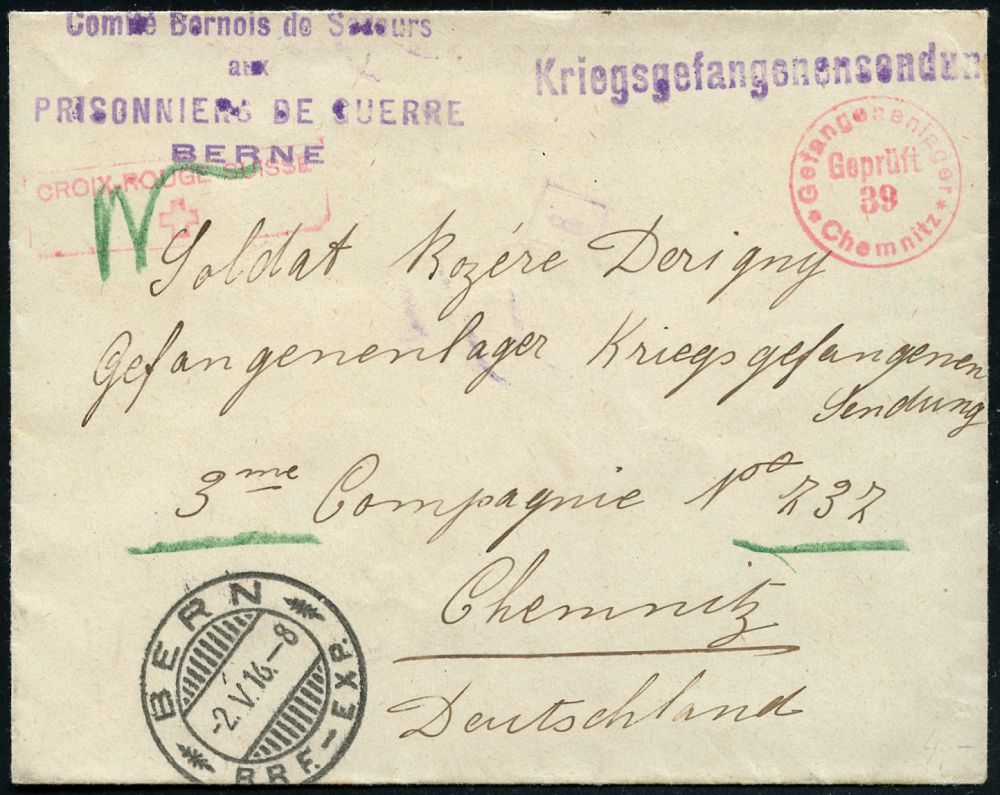 Comité Bernois de Secours
aux
PRISONNIERS DE GUERRE
BERNE
Kriegsgefangenensendun
CROIX-ROUGE SUISSE
Gefangenenlager
Geprüft
39
* Chemnitz *
8
Soldat Rozére Derigny
Gefangenenlager Kriegsgefangenen
Sendung
3me Compagnie No 232
Chemnitz
Deutschland
BERN
-2.V.16.-8
BRF.-EXP.
4.-